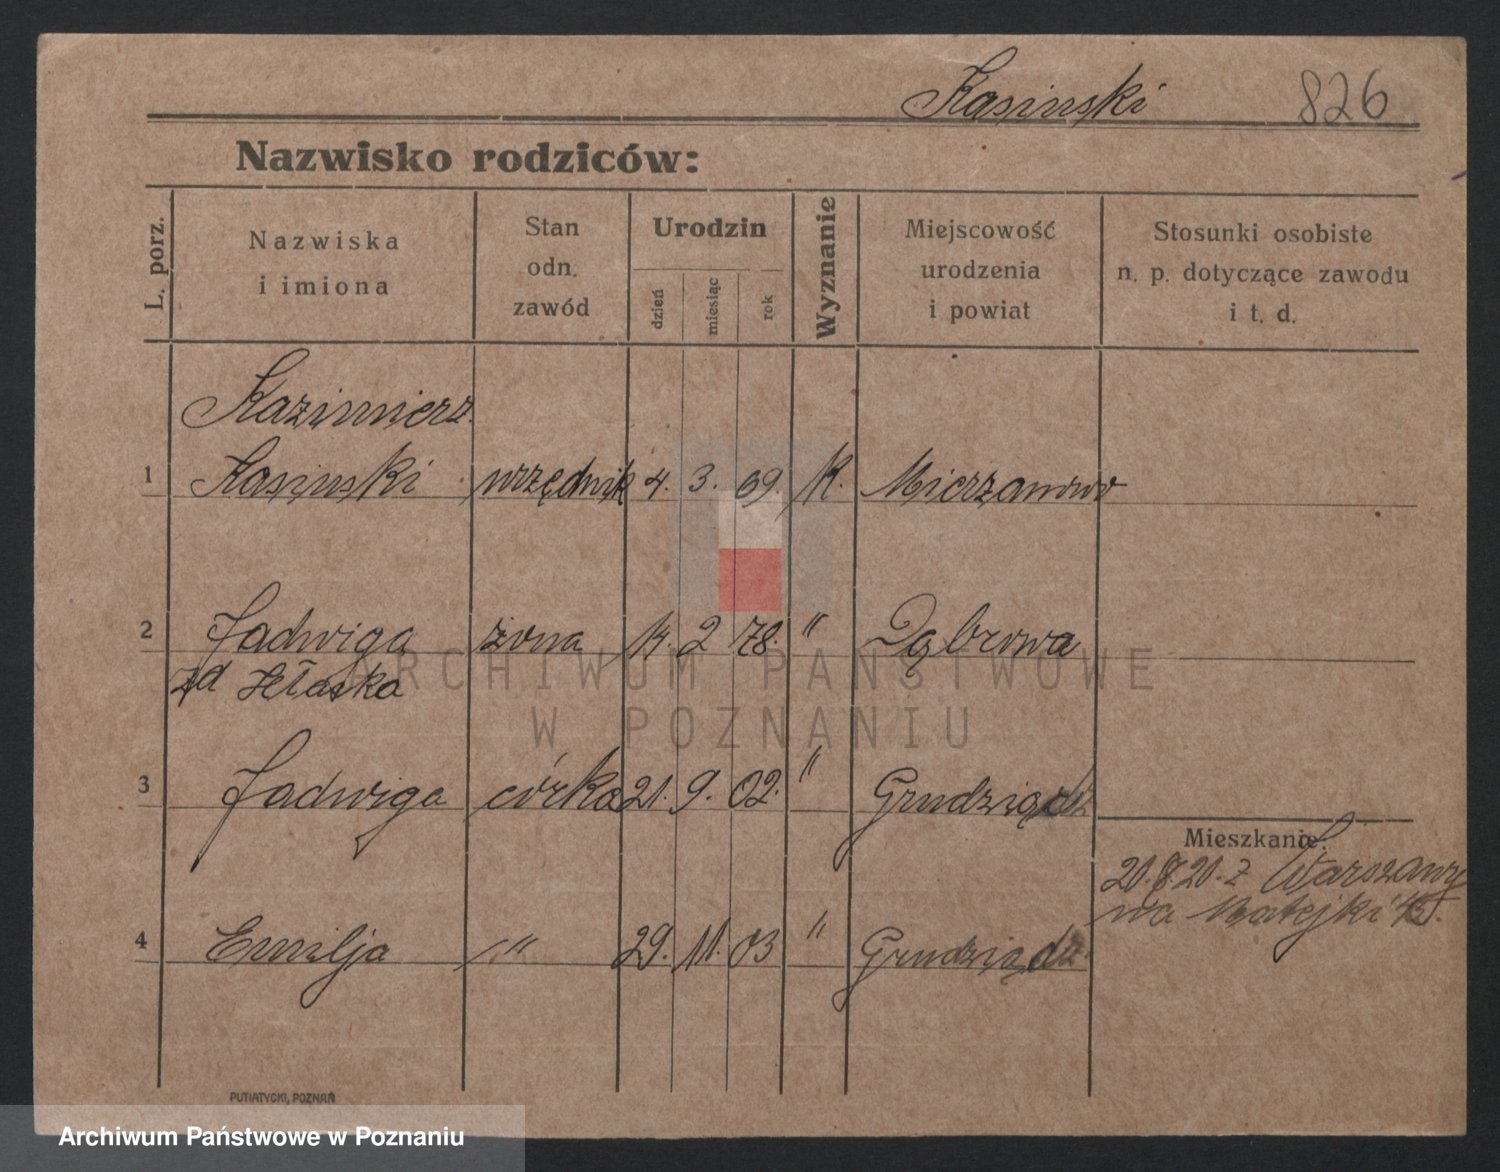 Kasinski 826
Nazwisko rodziców:
L. porz.
Nazwiska
i imiona
Stan
odn.
zawód
Urodzin
dzień
miesiąc
rok
Wyznanie
Miejscowość
urodzenia
i powiat
Stosunki osobiste
n. p. dotyczące zawodu
i t. d.
Kazimierz
1 Kasinski urzędnik 4. 3. 69. K. Mierzanowo
2 Jadwiga żona 14. 2 78. " Dąbrowa
zd
3 Jadwiga córka 21. 9. 02. " Grudziądz
Mieszkanie:
20.8.20. z Warszawy
na Matejki
4 Emilja " 29. 11. 03 " Grudziądz
PUTIATYCKI, POZNAŃ
ARCHIWUM PAŃSTWOWE
W POZNANIU
Archiwum Państwowe w Poznaniu